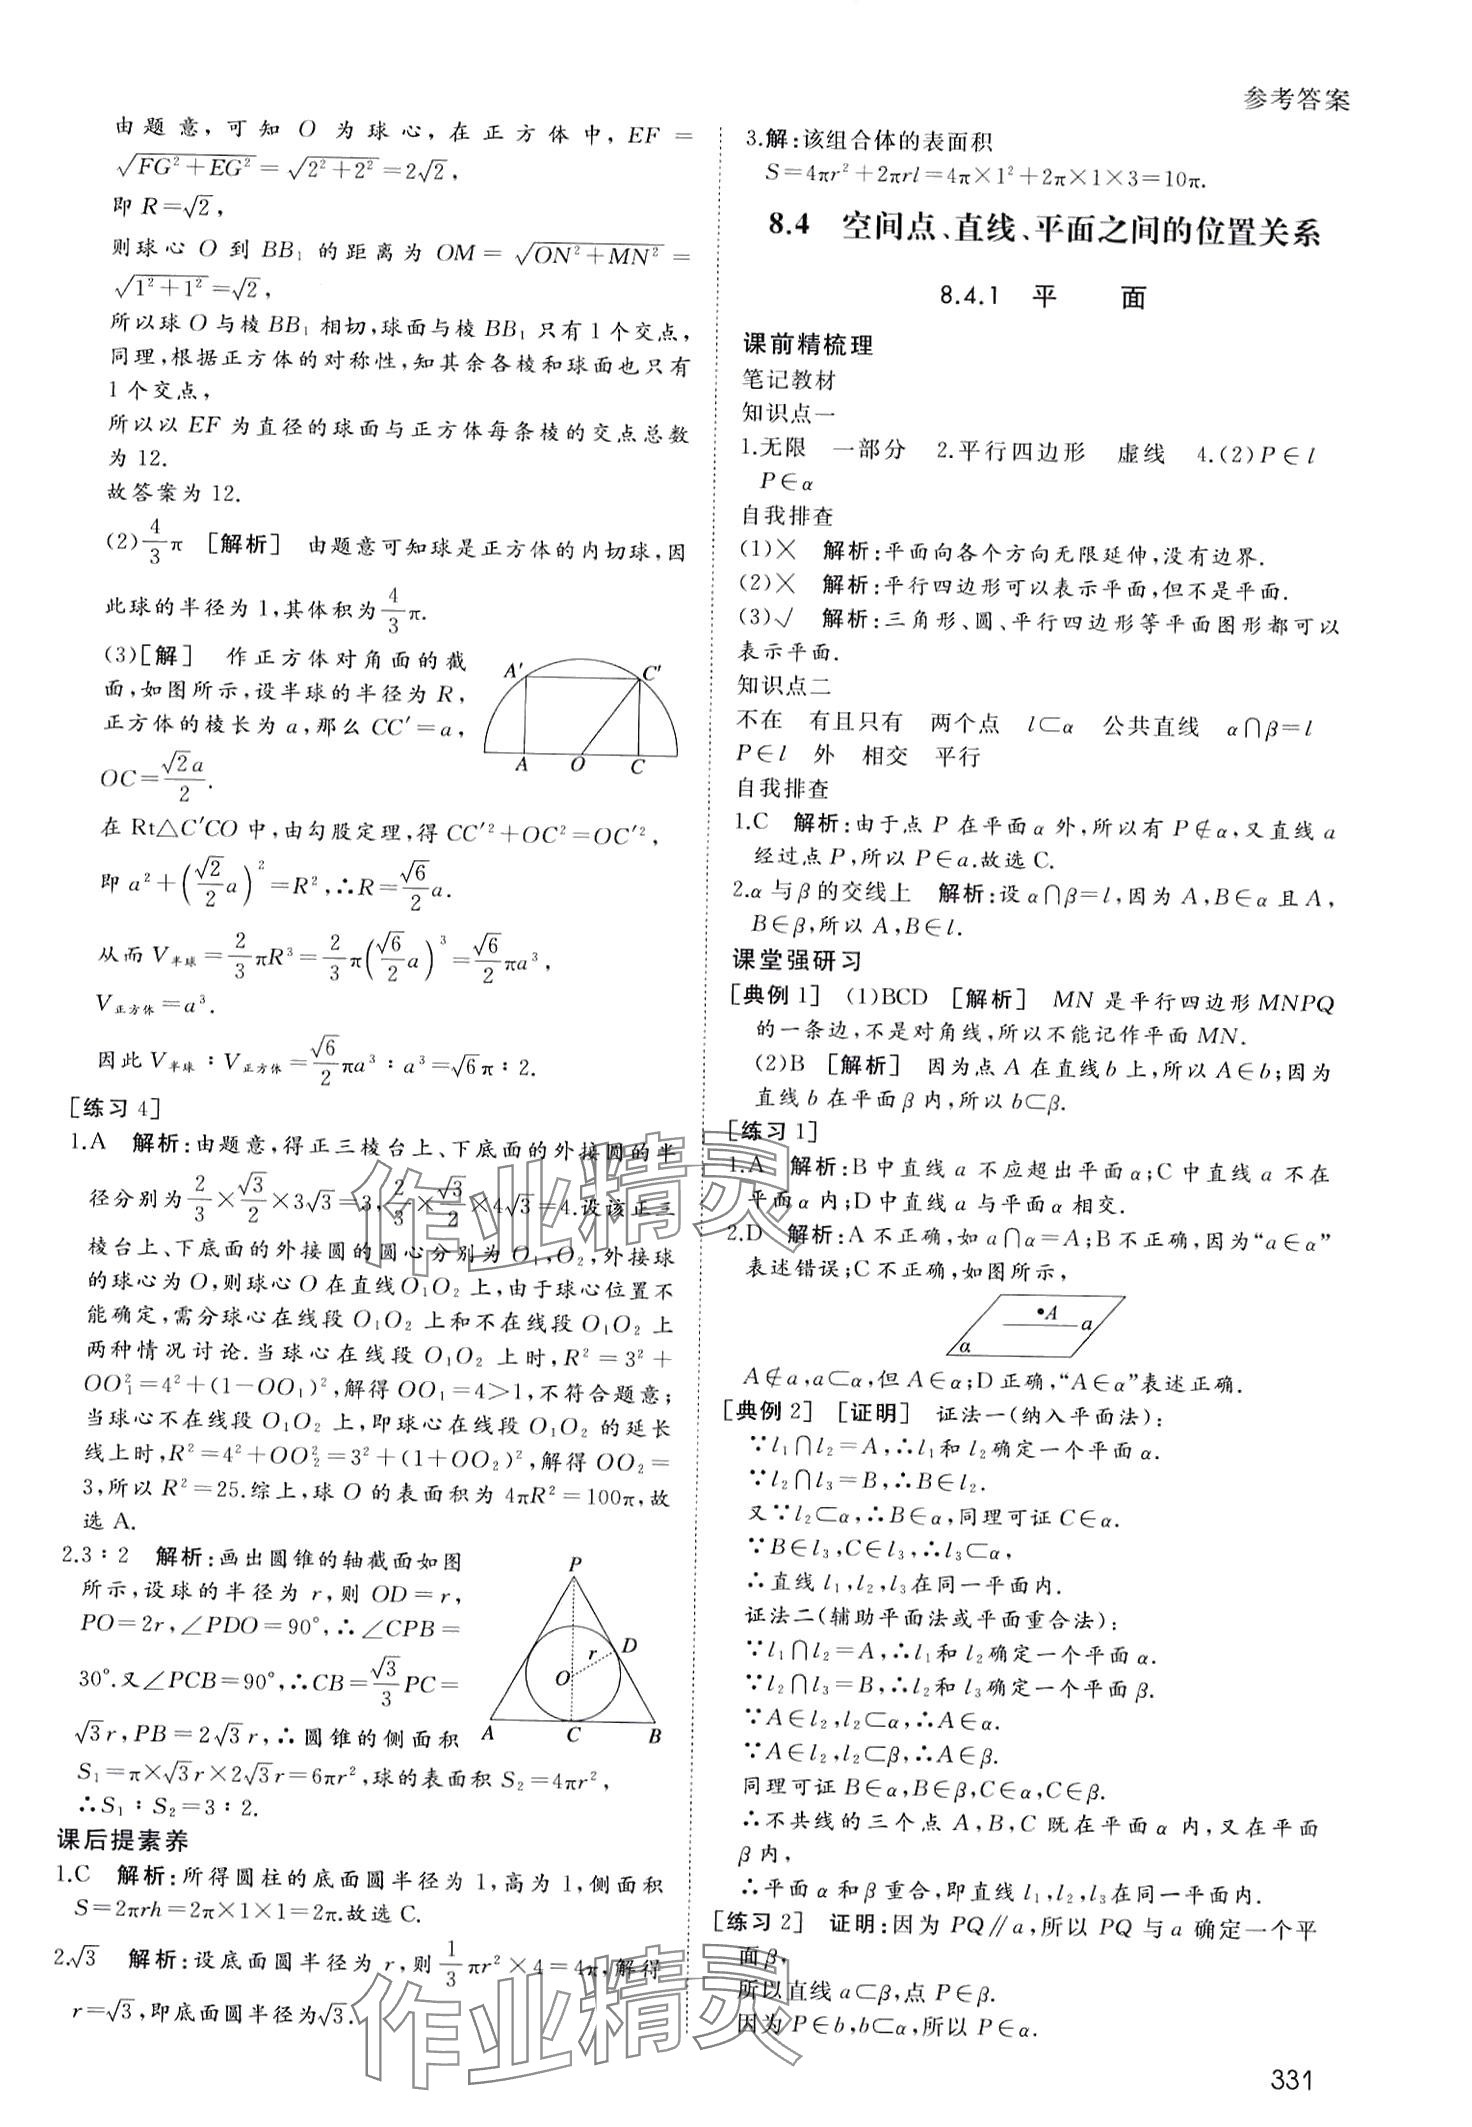 参考答案
由题意，可知 O 为球心，在正方体中，EF＝
√(FG²＋EG²)＝√(2²＋2²)＝2√2，
即 R＝√2，
则球心 O 到 BB₁ 的距离为 OM＝√(ON²＋MN²)＝
√(1²＋1²)＝√2，
所以球 O 与棱 BB₁ 相切，球面与棱 BB₁ 只有 1 个交点，
同理，根据正方体的对称性，知其余各棱和球面也只有
1 个交点，
所以以 EF 为直径的球面与正方体每条棱的交点总数
为 12.
故答案为 12.
(2)4/3π ［解析］ 由题意可知球是正方体的内切球，因
此球的半径为 1，其体积为4/3π.
(3)［解］ 作正方体对角面的截
面，如图所示，设半球的半径为 R，
正方体的棱长为 a，那么 CC′＝a，
OC＝√2a/2.
A′ C′
A O C
在 Rt△C′CO 中，由勾股定理，得 CC′²＋OC²＝OC′²，
即 a²＋(√2/2a)²＝R²，∴R＝√6/2a.
从而 V半球＝2/3πR³＝2/3π(√6/2a)³＝√6/2πa³，
V正方体＝a³.
因此 V半球∶V正方体＝√6/2πa³∶a³＝√6π∶2.
［练习 4］
1.A 解析：由题意，得正三棱台上、下底面的外接圆的半
径分别为2/3×√3/2×3√3＝3，2/3×√3/2×4√3＝4.设该正三
棱台上、下底面的外接圆的圆心分别为 O₁，O₂，外接球
的球心为 O，则球心 O 在直线O₁O₂ 上，由于球心位置不
能确定，需分球心在线段 O₁O₂ 上和不在线段 O₁O₂ 上
两种情况讨论.当球心在线段 O₁O₂ 上时，R²＝3²＋
OO₁²＝4²＋(1－OO₁)²，解得 OO₁＝4＞1，不符合题意；
当球心不在线段 O₁O₂ 上，即球心在线段 O₁O₂ 的延长
线上时，R²＝4²＋OO₂²＝3²＋(1＋OO₂)²，解得 OO₂＝
3，所以 R²＝25.综上，球 O 的表面积为 4πR²＝100π，故
选 A.
2.3∶2 解析：画出圆锥的轴截面如图
所示，设球的半径为 r，则 OD＝r，
PO＝2r，∠PDO＝90°，∴∠CPB＝
30°.又∠PCB＝90°，∴CB＝√3/3PC＝
√3r，PB＝2√3r，∴圆锥的侧面积
S₁＝π×√3r×2√3r＝6πr²，球的表面积 S₂＝4πr²，
∴S₁∶S₂＝3∶2.
P
r D
O
A C B
课后提素养
1.C 解析：所得圆柱的底面圆半径为 1，高为 1，侧面积
S＝2πrh＝2π×1×1＝2π.故选 C.
2.√3 解析：设底面圆半径为 r，则1/3πr²×4＝4π，解得
r＝√3，即底面圆半径为√3.
3.解：该组合体的表面积
S＝4πr²＋2πrl＝4π×1²＋2π×1×3＝10π.
8.4 空间点、直线、平面之间的位置关系
8.4.1 平 面
课前精梳理
笔记教材
知识点一
1.无限 一部分 2.平行四边形 虚线 4.(2)P∈l
P∈α
自我排查
(1)× 解析：平面向各个方向无限延伸，没有边界.
(2)× 解析：平行四边形可以表示平面，但不是平面.
(3)√ 解析：三角形、圆、平行四边形等平面图形都可以
表示平面.
知识点二
不在 有且只有 两个点 l⊂α 公共直线 α∩β＝l
P∈l 外 相交 平行
自我排查
1.C 解析：由于点 P 在平面 α 外，所以有 P∉α，又直线 a
经过点 P，所以 P∈a.故选 C.
2.α 与 β 的交线上 解析：设 α∩β＝l，因为 A，B∈α 且 A，
B∈β，所以 A，B∈l.
课堂强研习
［典例 1］ (1)BCD ［解析］ MN 是平行四边形 MNPQ
的一条边，不是对角线，所以不能记作平面 MN.
(2)B ［解析］ 因为点 A 在直线 b 上，所以 A∈b；因为
直线 b 在平面 β 内，所以 b⊂β.
［练习 1］
1.A 解析：B 中直线 a 不应超出平面 α；C 中直线 a 不在
平面 α 内；D 中直线 a 与平面 α 相交.
2.D 解析：A 不正确，如 a∩α＝A；B 不正确，因为“a∈α”
表述错误；C 不正确，如图所示，
A a
α
A∉a，a⊂α，但 A∈α；D 正确，“A∈α”表述正确.
［典例 2］ ［证明］ 证法一(纳入平面法)：
∵l₁∩l₂＝A，∴l₁和 l₂确定一个平面 α.
∵l₂∩l₃＝B，∴B∈l₂.
又∵l₂⊂α，∴B∈α，同理可证 C∈α.
∵B∈l₃，C∈l₃，∴l₃⊂α，
∴直线 l₁，l₂，l₃在同一平面内.
证法二(辅助平面法或平面重合法)：
∵l₁∩l₂＝A，∴l₁和 l₂确定一个平面 α.
∵l₂∩l₃＝B，∴l₂和 l₃确定一个平面 β.
∵A∈l₂，l₂⊂α，∴A∈α.
∵A∈l₂，l₂⊂β，∴A∈β.
同理可证 B∈α，B∈β，C∈α，C∈β.
∴不共线的三个点 A，B，C 既在平面 α 内，又在平面
β 内，
∴平面 α 和 β 重合，即直线 l₁，l₂，l₃在同一平面内.
［练习 2］ 证明：因为 PQ∥a，所以 PQ 与 a 确定一个平
面 β，
所以直线 a⊂β，点 P∈β.
因为 P∈b，b⊂α，所以 P∈α.
331
作业精灵
作业精灵